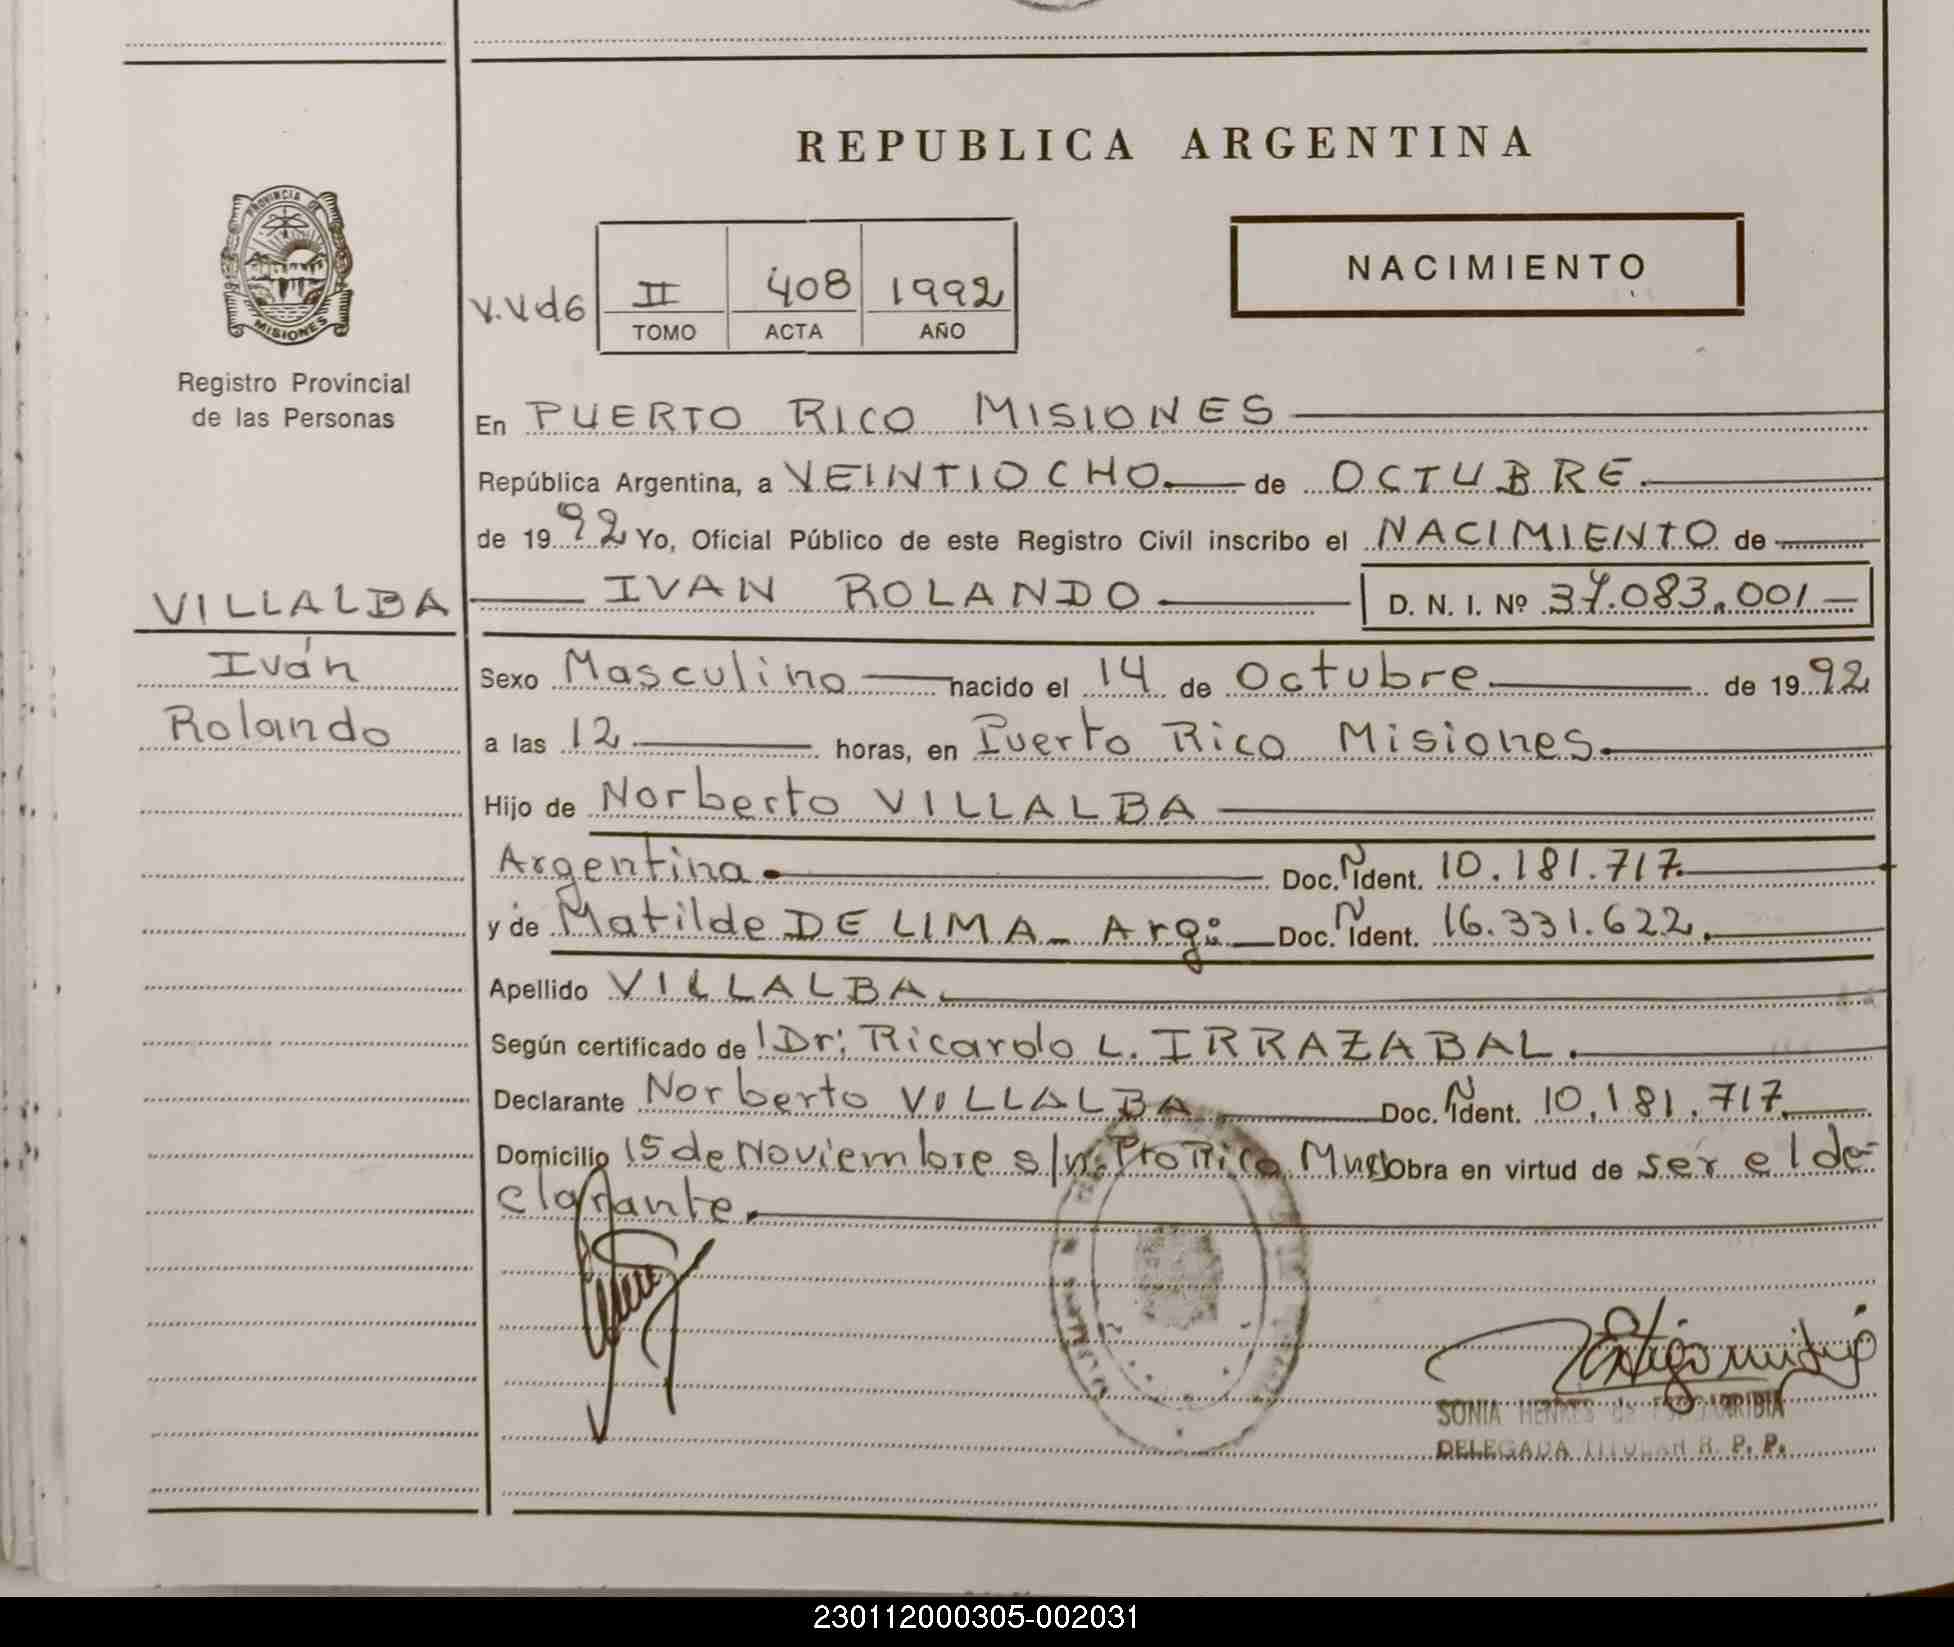 REPUBLICA ARGENTINA
PROVINCIA DE
MISIONES
Registro Provincial
de las Personas
V.Vd6
II 408 1992
TOMO ACTA AÑO
NACIMIENTO
En PUERTO RICO MISIONES
República Argentina, a VEINTIOCHO de OCTUBRE
de 1992 Yo, Oficial Público de este Registro Civil inscribo el NACIMIENTO de
VILLALBA
Iván
Rolando
IVAN ROLANDO D. N. I. Nº 37.083.001
Sexo Masculino nacido el 14 de Octubre de 1992
a las 12 horas, en Puerto Rico Misiones.
Hijo de Norberto VILLALBA
Argentina Doc. N Ident. 10.181.717.
y de Matilde DE LIMA - Arg: Doc. N Ident. 16.331.622.
Apellido VILLALBA.
Según certificado de Dr: Ricardo L. IRRAZABAL.
Declarante Norberto VILLALBA Doc. N Ident. 10.181.717.
Domicilio 15 de Noviembre s/n. Pto Rico Obra en virtud de ser el de-
clarante.
SONIA HENKES de
DELEGADA TITULAR R. P. P.
230112000305-002031